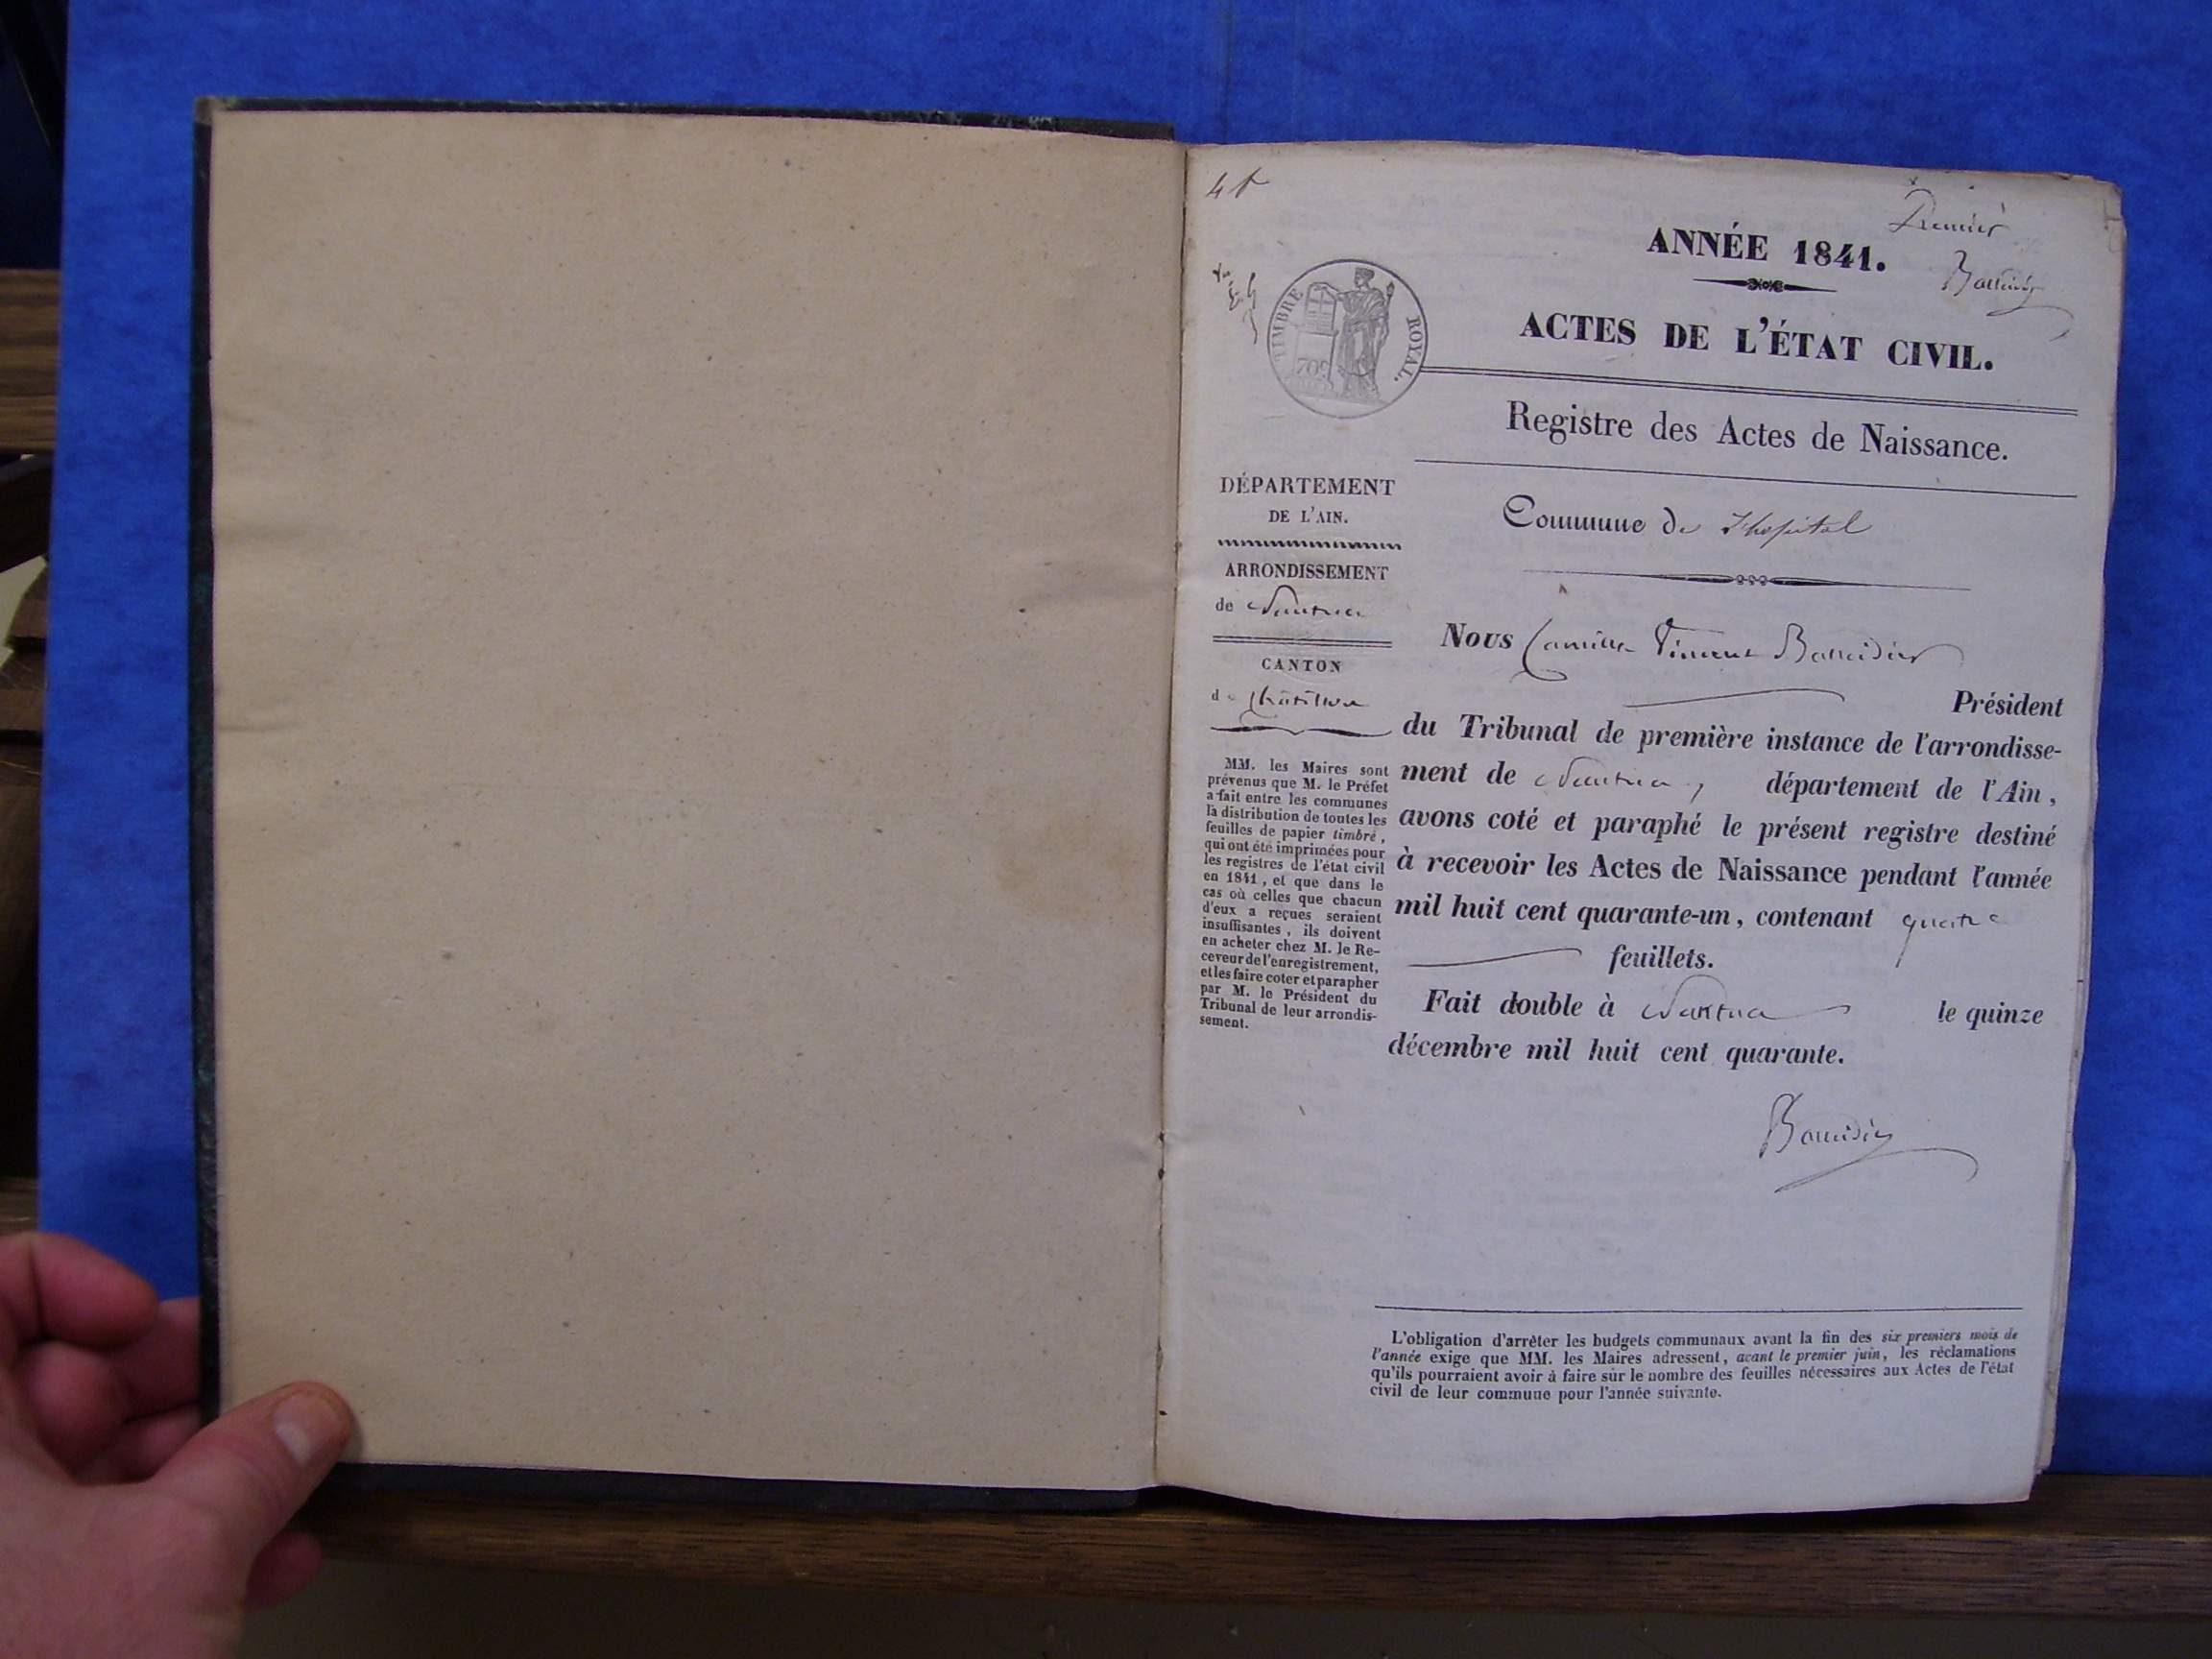 4 f
Premier
ANNÉE 1841.
TIMBRE ROYAL.
70c
ACTES DE L'ÉTAT CIVIL.
Registre des Actes de Naissance.
DÉPARTEMENT
DE L'AIN.
ARRONDISSEMENT
de Nantua
CANTON
de Châtillon
MM. les Maires sont
prévenus que M. le Préfet
a fait entre les communes
la distribution de toutes les
feuilles de papier timbré,
qui ont été imprimées pour
les registres de l'état civil
en 1841, et que dans le
cas où celles que chacun
d'eux a reçues seraient
insuffisantes, ils doivent
en acheter chez M. le Re-
ceveur de l'enregistrement,
et les faire coter et parapher
par M. le Président du
Tribunal de leur arrondis-
sement.
Commune de L'hopital
Nous Camille Vincent
Président
du Tribunal de première instance de l'arrondisse-
ment de Nantua, département de l'Ain,
avons coté et paraphé le présent registre destiné
à recevoir les Actes de Naissance pendant l'année
mil huit cent quarante-un, contenant quatre
feuillets.
Fait double à Nantua le quinze
décembre mil huit cent quarante.
L'obligation d'arrêter les budgets communaux avant la fin des six premiers mois de
l'année exige que MM. les Maires adressent, avant le premier juin, les réclamations
qu'ils pourraient avoir à faire sur le nombre des feuilles nécessaires aux Actes de l'état
civil de leur commune pour l'année suivante.